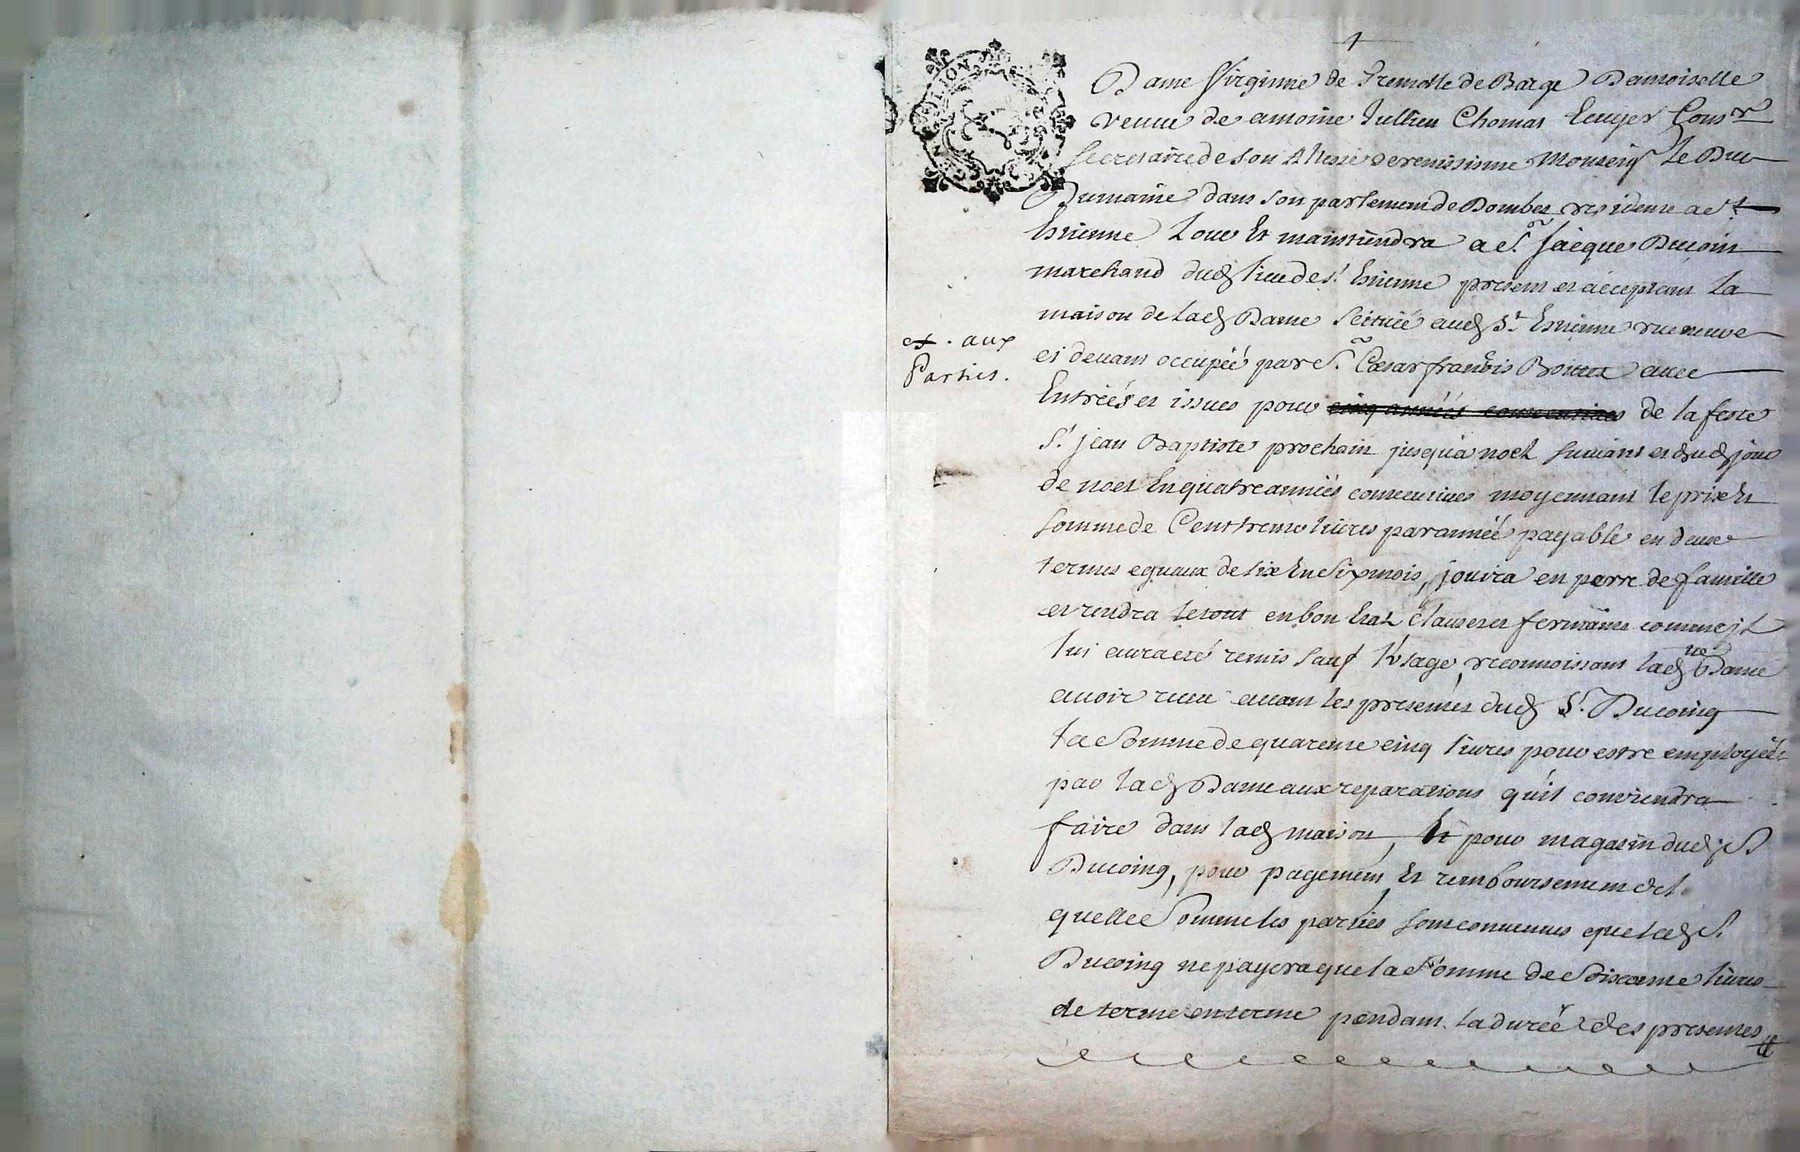 Dame Virginne de Tremolle de Barge Damoiselle
veuue de antoine Jullien Chomas Ecuyer Consr
secretaire de son Altesse serenissime Monseigr le Duc
Dumaine dans son parlement de Dombes residente a St
Estienne Loue Et maintiendra a Sr Jacque Ducoin
marchand dud lieu de St Estienne present et acceptant La
maison de lad Dame scituée aud St Estienne rue neuve
cy devant occupée par Sr Cesar françois avec
Entrées et issues pour cinq années consecutives de la feste
St jean Baptiste prochain jusqu'a noel suivant et dud jour
de noel En quatre années consecutives moyennant le prix Et
somme de Cent trente livres par année payable en deux
termes egaux de six En six mois, jouira en perre de famille
et rendra le tout en bon Etat Clauseres fermantes comme il
lui aura eté remis sauf l'Vsage, reconnoissant lad Dame
avoir receu avant les presentes dud Sr Ducoing
la Somme de quarente cinq livres pour estre employée
par lad Dame aux reparations qu'il conviendra
faire dans lad maison, Et pour magasin dud Sr
Ducoing, pour payement Et remboursement de la
quelle Somme les parties sont convenues que led Sr
Ducoing ne payera que la Somme de Soixante livres
de terme en terme pendant la durée des presentes
et . aux
Parties.